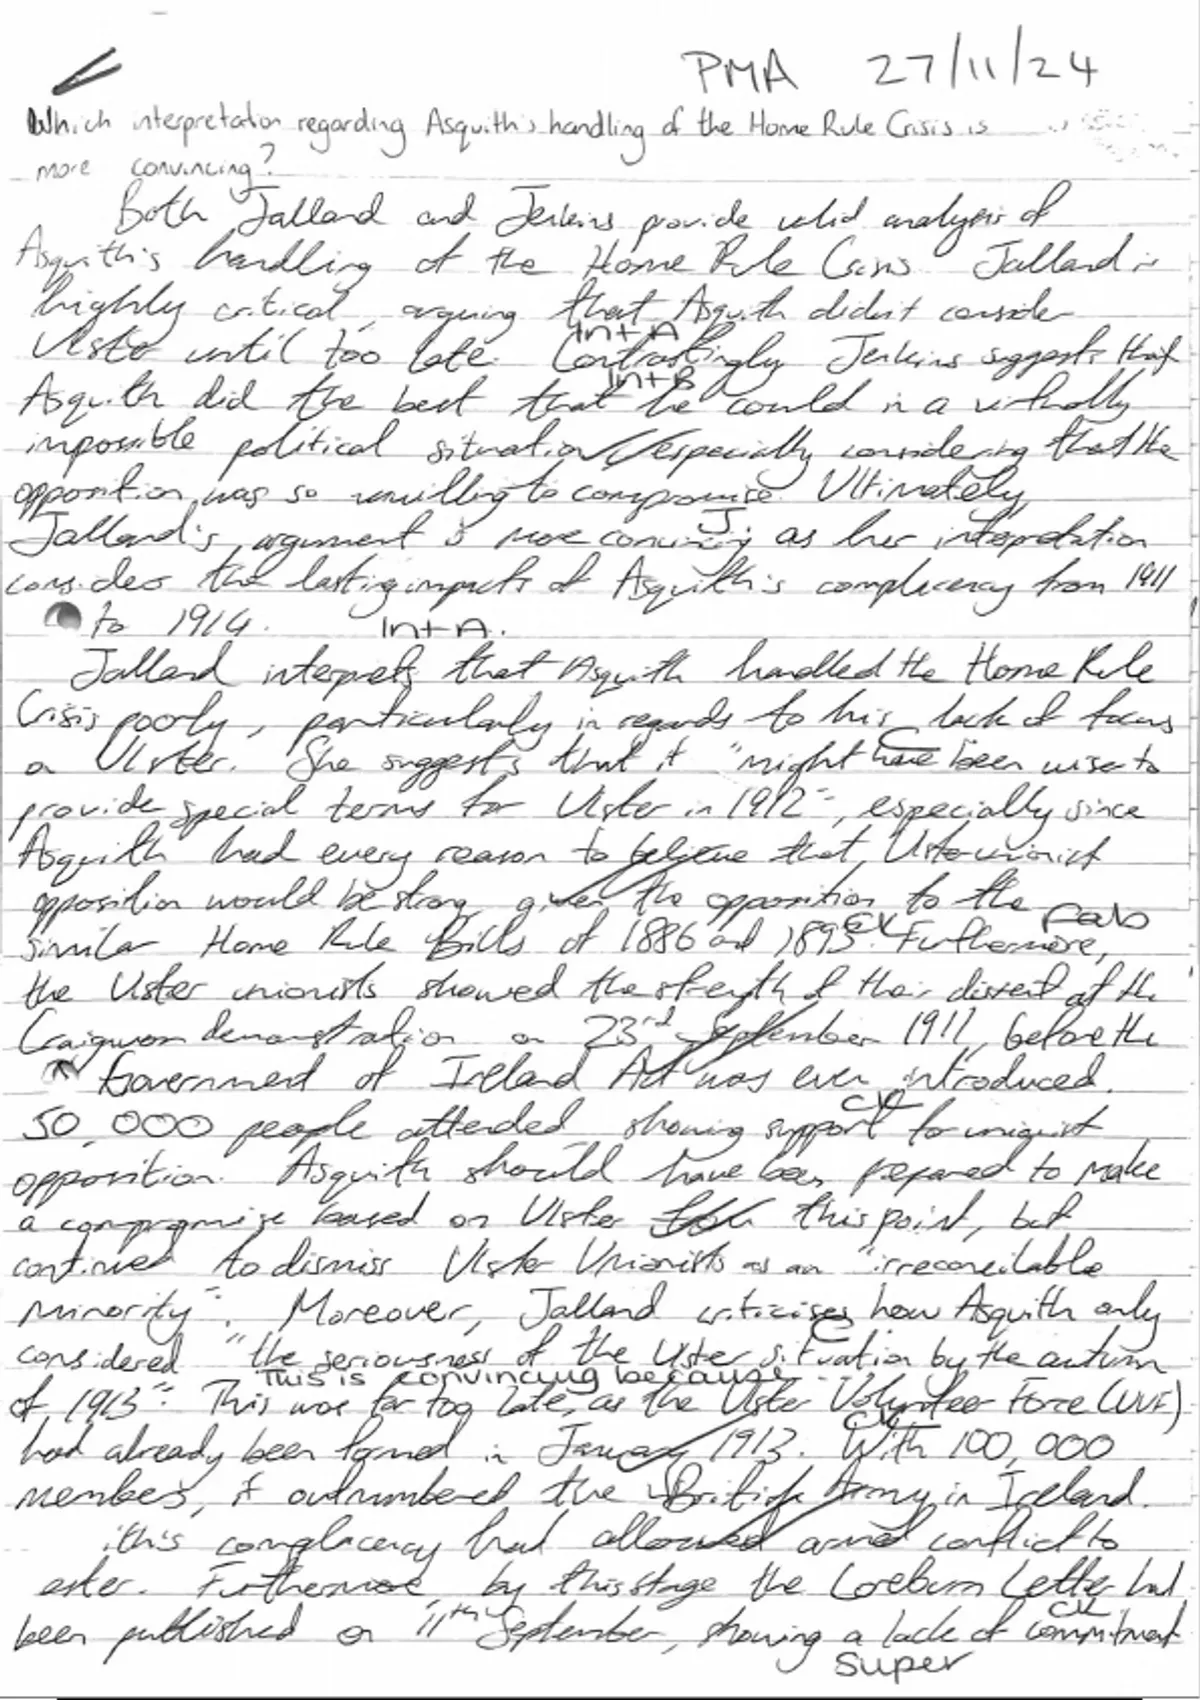 PMA 27/11/24
Which interpretation regarding Asquith's handling of the Home Rule Crisis is
more convincing?
Both Jalland and Jenkins provide valid analysis of
Asquith's handling of the Home Rule Crisis. Jalland is
highly critical, arguing that Asquith didn't consider
Int A
Ulster until too late. Contrastingly Jenkins suggests that
Int B
Asquith did the best that he could in a virtually
impossible political situation, especially considering that the
opposition was so unwilling to compromise. Ultimately,
J.
Jalland's argument is more convincing as her interpretation
considers the lasting impacts of Asquith's complacency from 1911
to 1914. Int A.
Jalland interprets that Asquith handled the Home Rule
Crisis poorly, particularly in regards to his lack of focus
on Ulster. She suggests that it "might have been wise to
provide special terms for Ulster in 1912", especially since
Asquith had every reason to believe that Ulster unionist
opposition would be strong given the opposition to the
similar Home Rule Bills of 1886 and 1893. Furthermore,
CK fab
the Ulster unionists showed the strength of their dissent at the
Craigavon demonstration on 23rd September 1911, before the
Government of Ireland Act was even introduced.
CK
50,000 people attended, showing support for unionist
opposition. Asquith should have been prepared to make
a compromise based on Ulster this point, but
continued to dismiss Ulster Unionists as an "irreconcilable
minority". Moreover, Jalland criticises how Asquith only
considered "the seriousness of the Ulster situation by the autumn
This is convincing because ...
of 1913". This was far too late, as the Ulster Volunteer Force (UVF)
had already been formed in January 1913. With 100,000
CK
members, it outnumbered the British Army in Ireland.
this complacency had allowed armed conflict to
ester. Furthermore, by this stage the Loreburn Letter had
been published on 11th September, showing a lack of commitment
CK
super